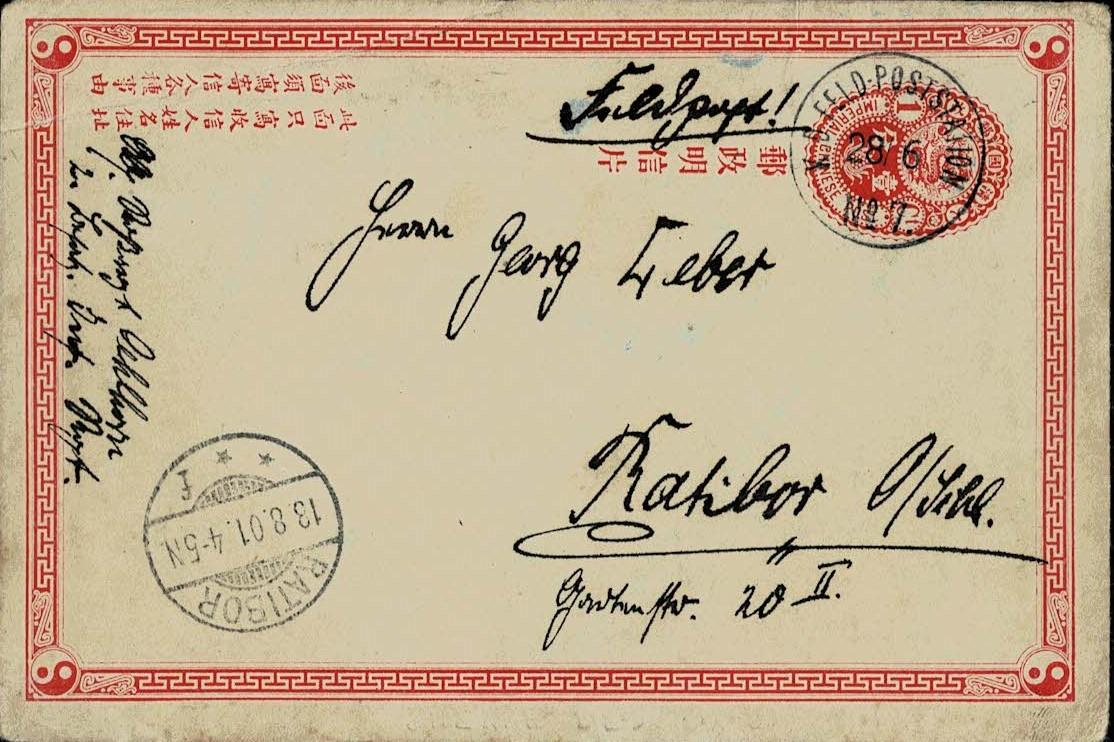 Feldpost!
Herrn
Georg Weber
Ratibor O/Schl.
Gartenstr. 20 II.
K.D. FELD-POSTSTATION
28/6
No 7.
1
IMPERIAL CHINESE POST
郵政明信片
後面須寫寄信人各種事由
此面只寫收信人姓名住址
RATIBOR
13.8.01.4-5N
* *
f